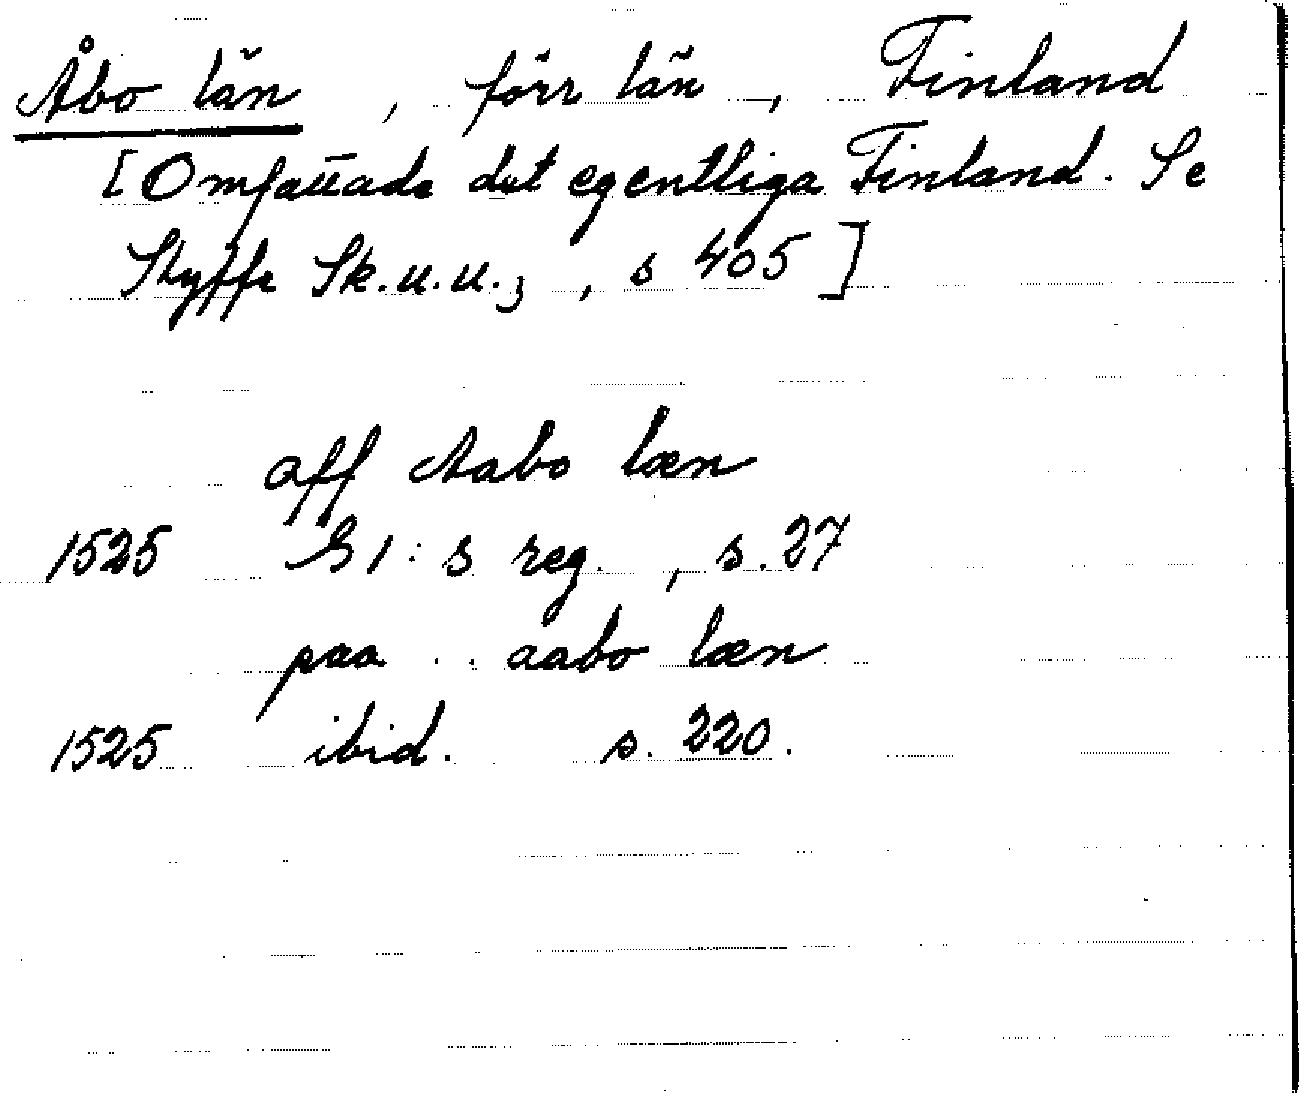 Åbo län, förr län, Finland
[Omfattade det egentliga Finland. Se
Styffe Sk.u.u.3, s 405]
aff Aabo læn
1525 G1:s reg., s. 27
paa .. aabo læn
1525 ibid. s. 220.